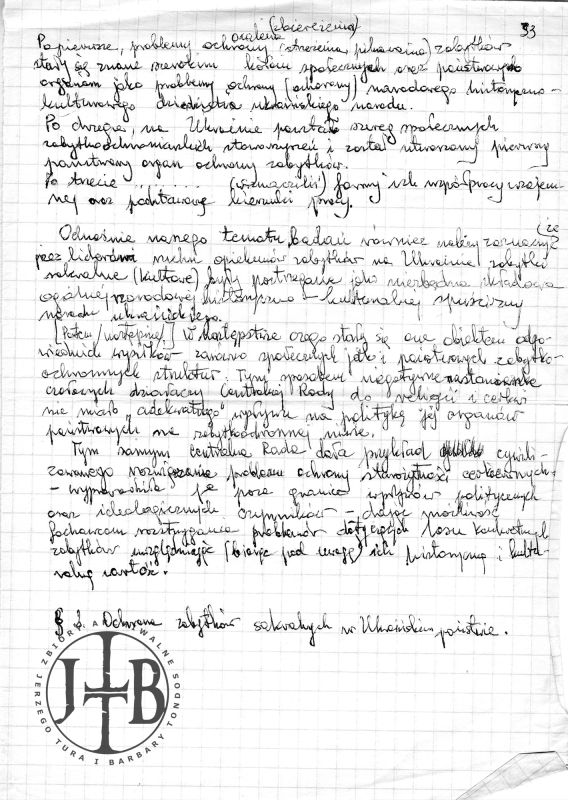 33
ocalenia (zbereżenia)
Po pierwsze, problemy ochrony (strzeżenia, pilnowania) zabytków
stały się znane szerokim kołom społecznych oraz państwowych
organom jako problemy ochrony (ochorony) narodowego historyczno-
kulturowego dziedzictwa ukraińskiego narodu.
Po drugie, na Ukrainie powstał szereg społecznych
zabytkoochroniarskich stowarzyszeń i został utworzony pierwszy
państwowy organ ochrony zabytków.
Po trzecie ........ formy ich współpracy wzajem-
nej oraz podstawowe kierunki pracy.
Odnośnie naszego tematu badań również należy zaznaczyć (że
przez liderów ruchu opiekunów zabytków na Ukrainie zabytki
sakralne (kultowe) były postrzegane jako niezbędna składowa
ogólnej narodowej historyczno - kulturalnej spuścizny
narodu ukraińskiego.
[Potem/następnie] W następstwie czego stały się one obiektem odpo-
wiednich wysiłków zarówno społecznych jak i państwowych zabytko-
ochronnych struktur. Tym sposobem negatywne nastawienie
czołowych działaczy Centralnej Rady do religii i cerkwi
nie miało adekwatnego wpływu na politykę jej organów
państwowych na zabytkochronnej niwie.
Tym samym Centralna Rada dała przykład cywili-
zowanego rozwiązania problemu ochrony starożytności cerkiewnych
- wyprowadziła je poza granice wpływów politycznych
oraz ideologicznych czynników - dając możliwość
fachowcom rozstrzygania problemów dotyczących losu konkretnych
zabytków uwzględniając (biorąc pod uwagę) ich historyczną i kultu-
ralną wartość.
§ 2. Ochrona zabytków sakralnych w Ukraińskim państwie.
ZBIORY ARCHIWALNE SODO
JERZEGO TURA I BARBARY TONDOS
JTB